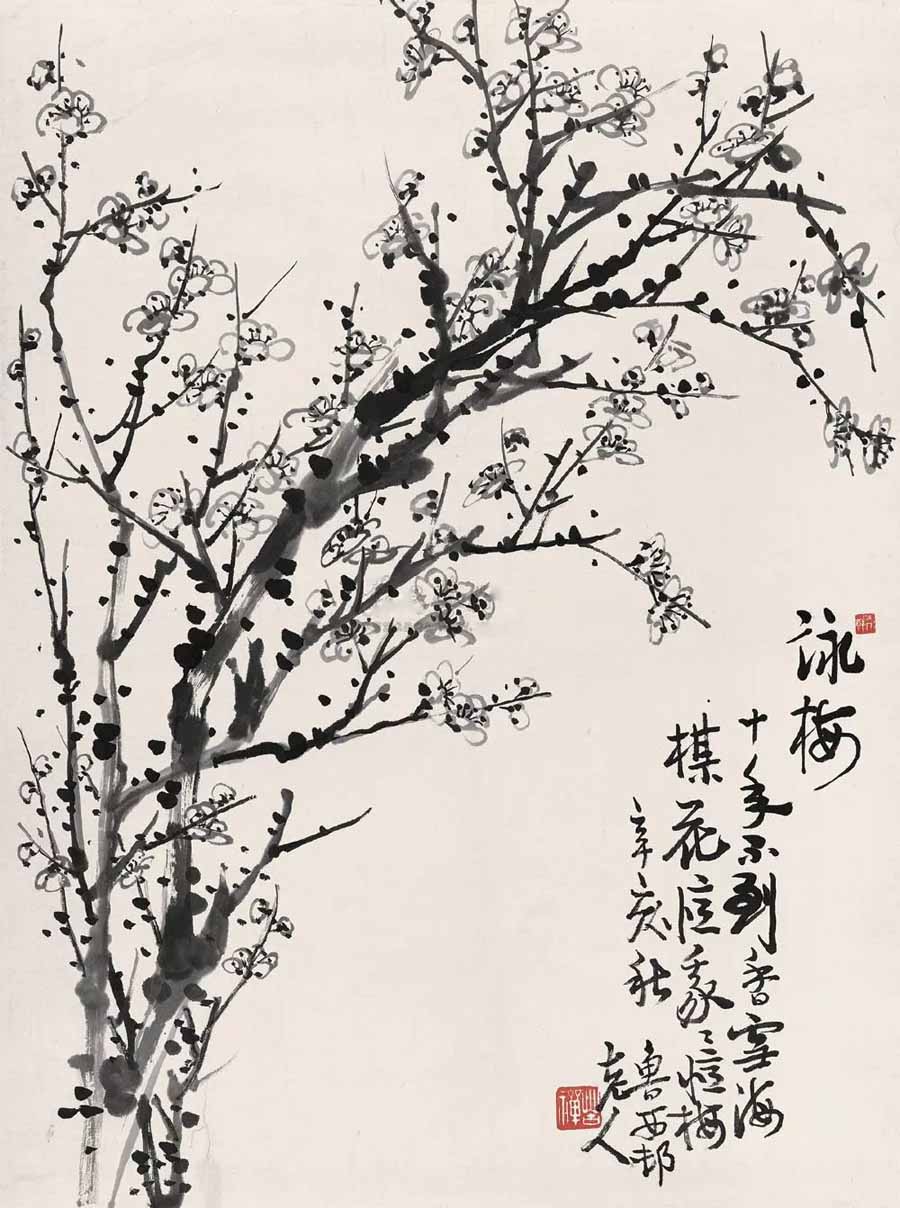 詠梅
十年不到香雪海
楳花憶我〻憶梅
辛亥秋
魯西邨
老人